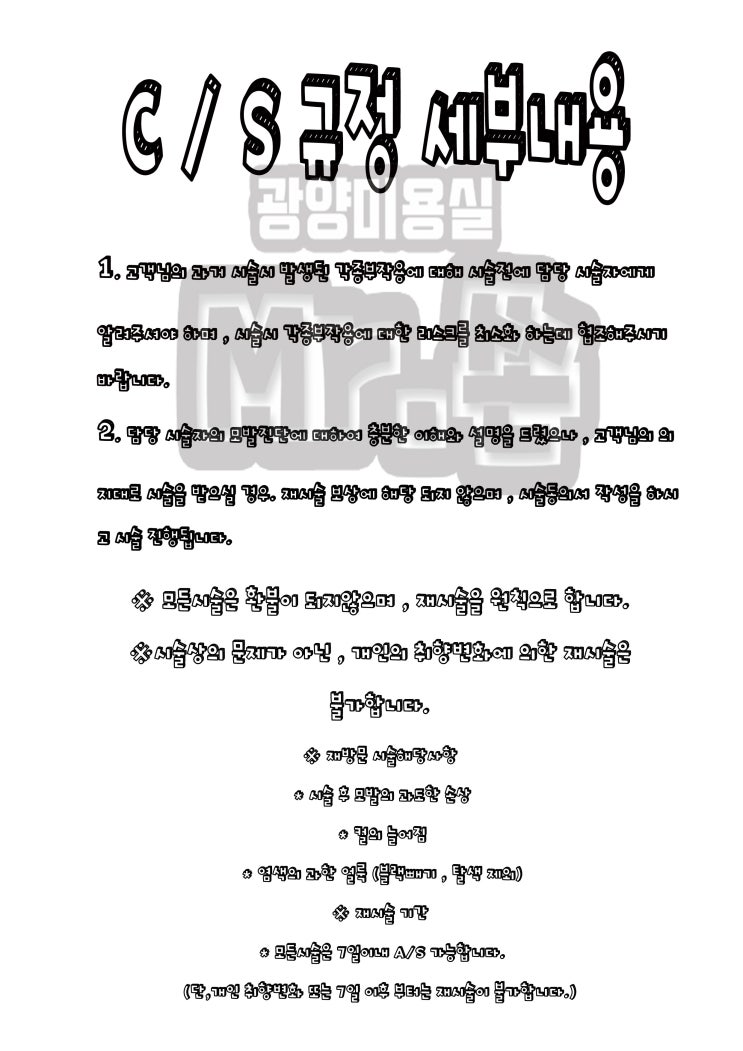 C / S 규정 세부내용
광양미용실
Mr.쏜
1. 고객님의 과거 시술시 발생된 각종부작용에 대해 시술전에 담당 시술자에게
알려주셔야 하며 , 시술시 각종부작용에 대한 리스크를 최소화 하는데 협조해주시기
바랍니다.
2. 담당 시술자의 모발진단에 대하여 충분한 이해와 설명을 드렸으나 , 고객님의 의
지대로 시술을 받으실 경우. 재시술 보상에 해당 되지 않으며 , 시술동의서 작성을 하시
고 시술 진행됩니다.
※ 모든시술은 환불이 되지않으며 , 재시술을 원칙으로 합니다.
※시술상의 문제가 아닌 , 개인의 취향변화에 의한 재시술은
불가합니다.
※ 재방문 시술해당사항
* 시술 후 모발의 과도한 손상
* 컬의 늘어짐
* 염색의 과한 얼룩 (블랙빼기 , 탈색 제외)
※ 재시술 기간
* 모든시술은 7일이내 A/S 가능합니다.
(단,개인 취향변화 또는 7일 이후 부터는 재시술이 불가합니다.)